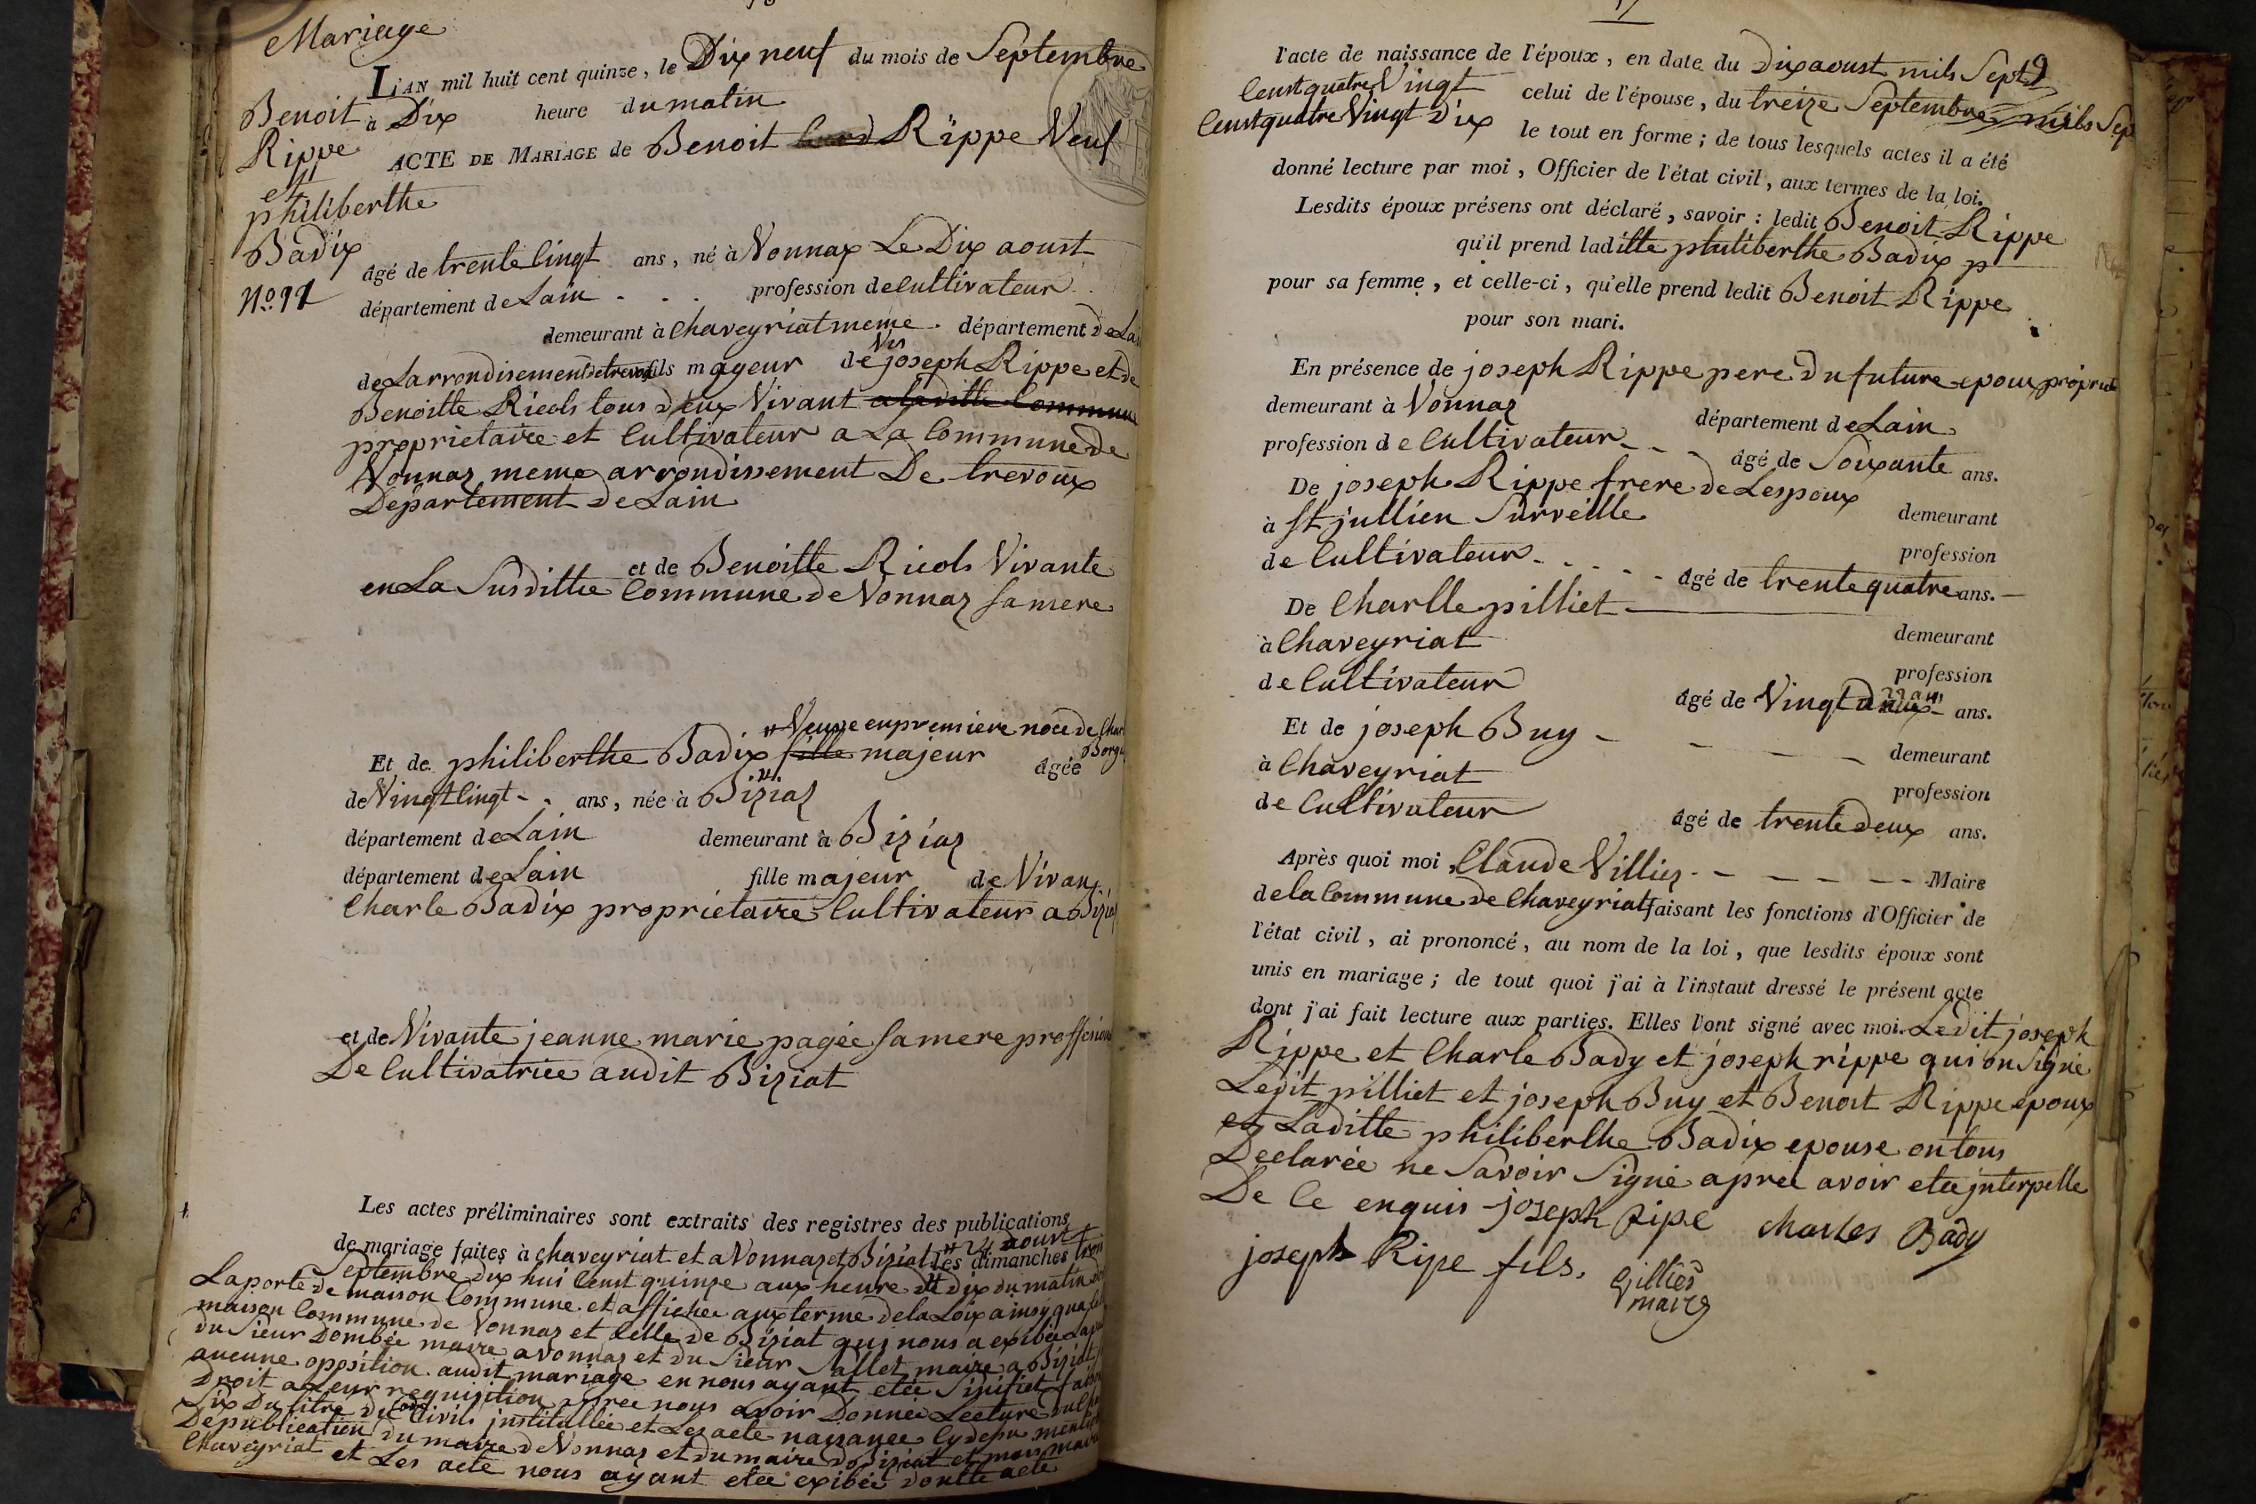 Mariage
Benoit
Rippe
et
philiberthe
Badix
L'AN mil huit cent quinze, le Dix neuf du mois de Septembre
à Dix heure du matin
ACTE DE MARIAGE de Benoit Rippe Veuf
âgé de trente Cinqt ans, né à Vonnax Le Dix aoust
département de Lain . . . profession de Cultivateur
demeurant à Chaveyriat meme . département de Lain
de Larrondisement de trevoux fils mayeur de joseph Rippe et de
Benoitte Ricols tous deux Vivant a laditte Commune
proprietaire et Cultivateur a La Commune de
Vonnaz meme arrondissement De trevoux
Departement de Lain
et de Benoitte Ricols Vivante
en La Susdittte Commune de Vonnaz sa mere
Veuve en premiere noce de
Et de philiberthe Badix fille majeur âgée
de Vingt Cinqt - . ans, née à Biziaz
département de Lain demeurant à Biziaz
département de Lain fille majeur de Vivan
Charle Badix proprietaire Cultivateur a Biziaz
et de Vivante jeanne marie pagée sa mere proffesion
De Cultivatrice audit Biziat
Les actes préliminaires sont extraits des registres des publications
de mariage faites à Chaveyriat et a Vonnaz et Biziat les dimanches
24 aoust
Septembre dix hui Cent quinze aux heure de dix du matin
La porte de maison Commune et affichee aux terme de la Loix ainsy qua
maison Commune de Vonnaz et Celle de Biziat qui nous a exibée
du Sieur Dombée maire a Vonnaz et du Sieur Sallet maire a Biziat
aucune opposition audit mariage en nous ayant etée Sinifiet
Droit a Leur requisition apree nous avoir Donnée Lecture du
Six Du titre du Code Civils institullée et Les acte naissance Cy dessu
De publication du maire de Vonnaz et du maire de Biziat et
Chaveyriat et Les acte nous ayant etée exibée dontte acte
l'acte de naissance de l'époux, en date du Dix aoust mils Sept
Cent quatre Vingt celui de l'épouse, du treize Septembre mils Sep
Cent quatre Vingt Dix le tout en forme ; de tous lesquels actes il a été
donné lecture par moi, Officier de l'état civil, aux termes de la loi.
Lesdits époux présens ont déclaré, savoir : ledit Benoit Rippe
qu'il prend laditte philiberthe Badix
pour sa femme, et celle-ci, qu'elle prend ledit Benoit Rippe
pour son mari.
En présence de joseph Rippe pere du future epoux
demeurant à Vonnaz département de Lain
profession de Cultivateur - - âgé de Soixante ans.
De joseph Rippe frere de Lespoux demeurant
à St jullien Surveille profession
de Cultivateur - . - . - âgé de trente quatre ans.
De Charlle pilliet demeurant
à Chaveyriat profession
de Cultivateur âgé de Vingt deux ans.
Et de joseph Buy - demeurant
à Chaveyriat profession
de Cultivateur âgé de trente deux ans.
Après quoi moi, Claude Villiez - - - - - Maire
de la Commune de Chaveyriat faisant les fonctions d'Officier de
l'état civil, ai prononcé, au nom de la loi, que lesdits époux sont
unis en mariage ; de tout quoi j'ai à l'instaut dressé le présent acte
dont j'ai fait lecture aux parties. Elles l'ont signé avec moi. Ledit joseph
Rippe et Charle Bady et joseph rippe qui on Signé
Ledit pilliet et joseph Buy et Benoit Rippe epoux
et Laditte philiberthe Badix epouse on tous
Declarée ne Savoir Signé apree avoir etée jnterpelle
De Ce enquis joseph Ripe Charles Bady
joseph Ripe fils.
maire